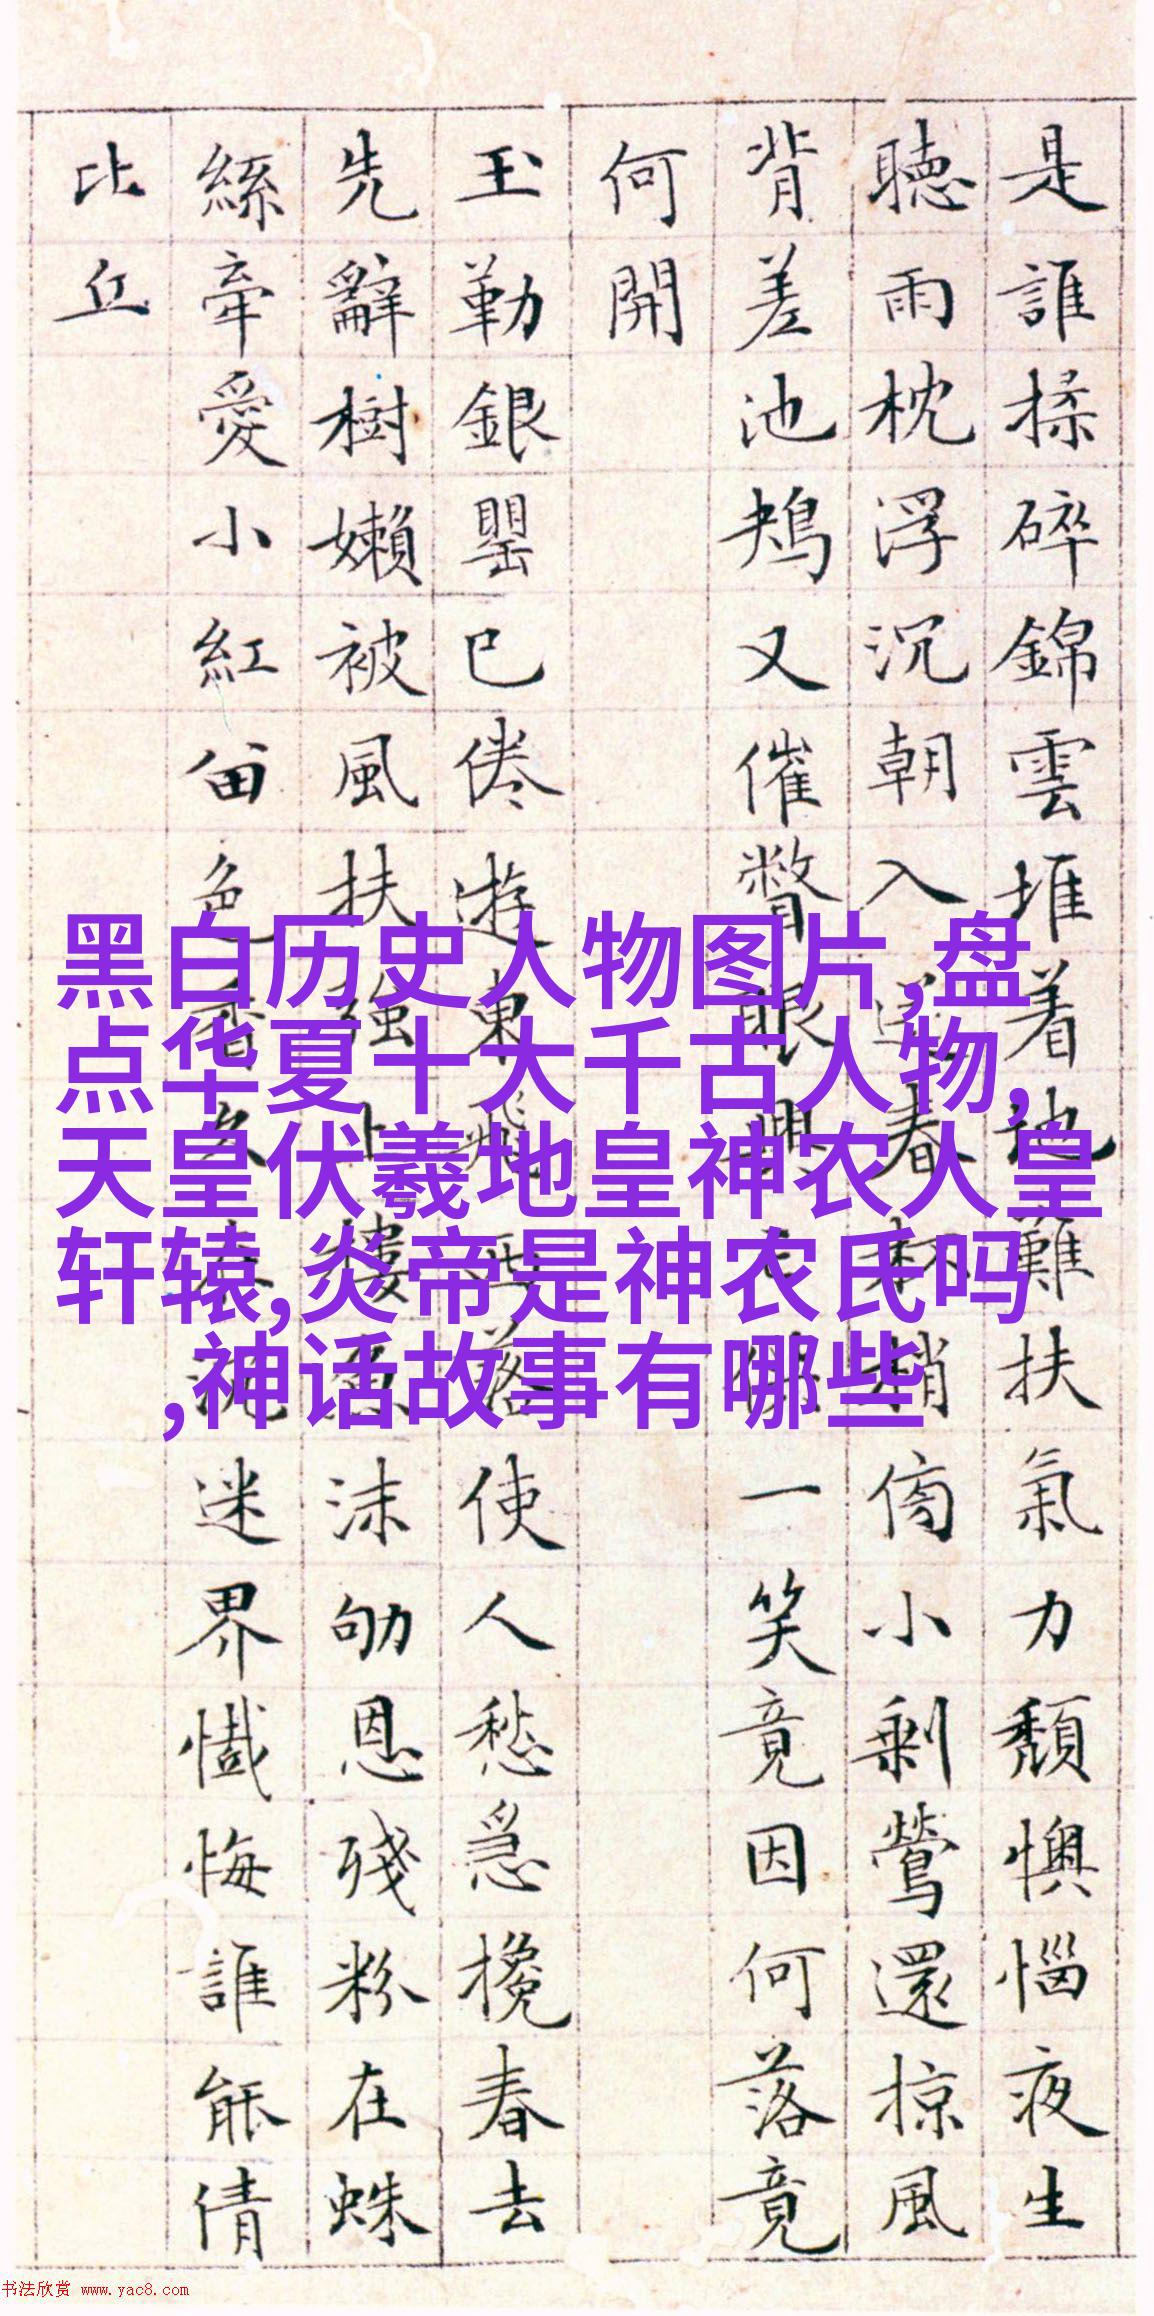 是誰揉碎錦雲堆着地難扶氣力頹懊惱夜生
聴雨枕浮沉朝入送春杯梢小剩鶯還掠風
背差池鴂又催瞥眼興亡供一笑竟因何落竟
何開
玉勒銀罌已倦遊東飛西落使人愁急攙春去
先辭樹嬾被風扶強上樓魚沫劬恩殘粉在蛛
絲牽愛小紅留色香久參沉迷界懺悔誰能倩
比丘
黑白历史人物图片,盘
点华夏十大千古人物,
天皇伏羲地皇神农人皇
轩辕,炎帝是神农氏吗
,神话故事有哪些
书法欣赏 www.yac8.com